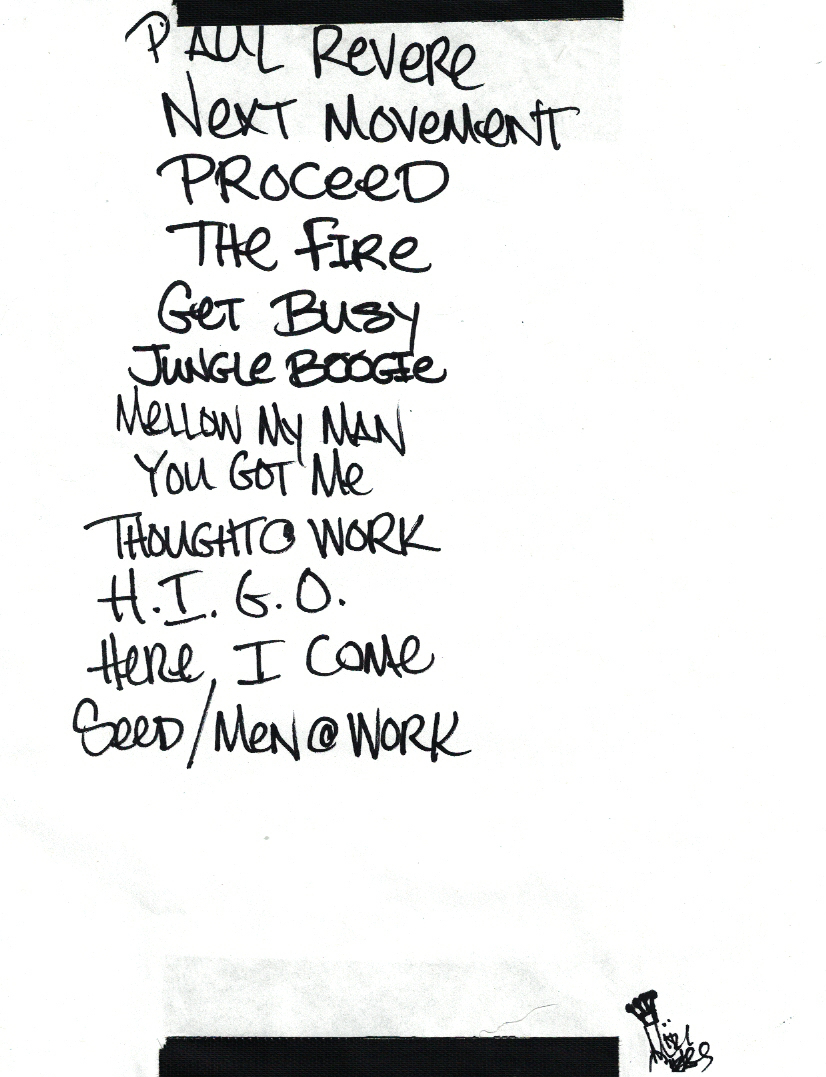 PAUL REVERE
NEXT MOVEMENT
PROCEED
THE FIRE
GET BUSY
JUNGLE BOOGIE
MELLOW MY MAN
YOU GOT ME
THOUGHT@ WORK
H.I.G.O.
HERE, I COME
SEED/MEN@WORK